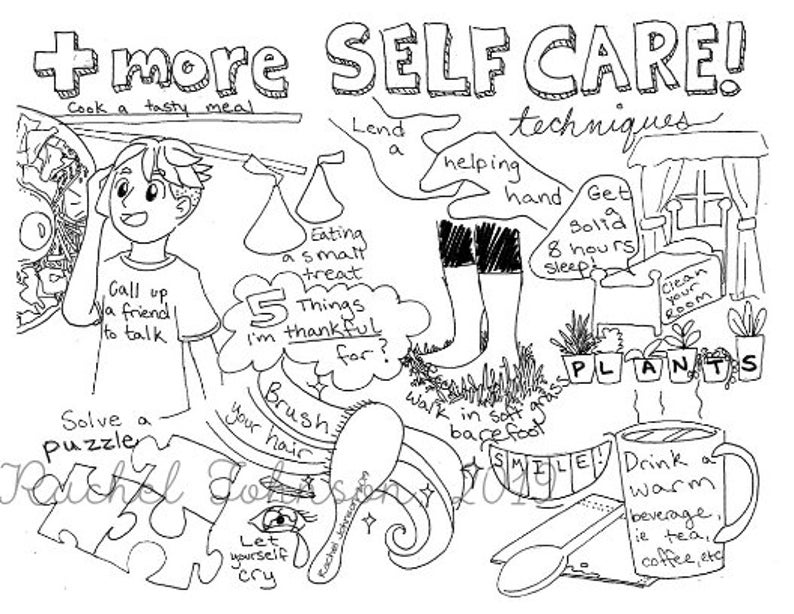 + more SELF CARE!
techniques
Cook a tasty meal
Lend
a
helping
hand
Get
a
solid
8 hours
sleep!
Eating
a small
treat
Call up
a friend
to talk
Clean
your
Room
5 Things
i'm thankful
for?
PLANTS
Brush
your hair
walk in soft grass
barefoot
Solve a
puzzle
SMILE!
Drink a
warm
beverage,
ie tea,
coffee, etc
Let
yourself
cry
Rachel Johnson
Rachel Johnson 2019